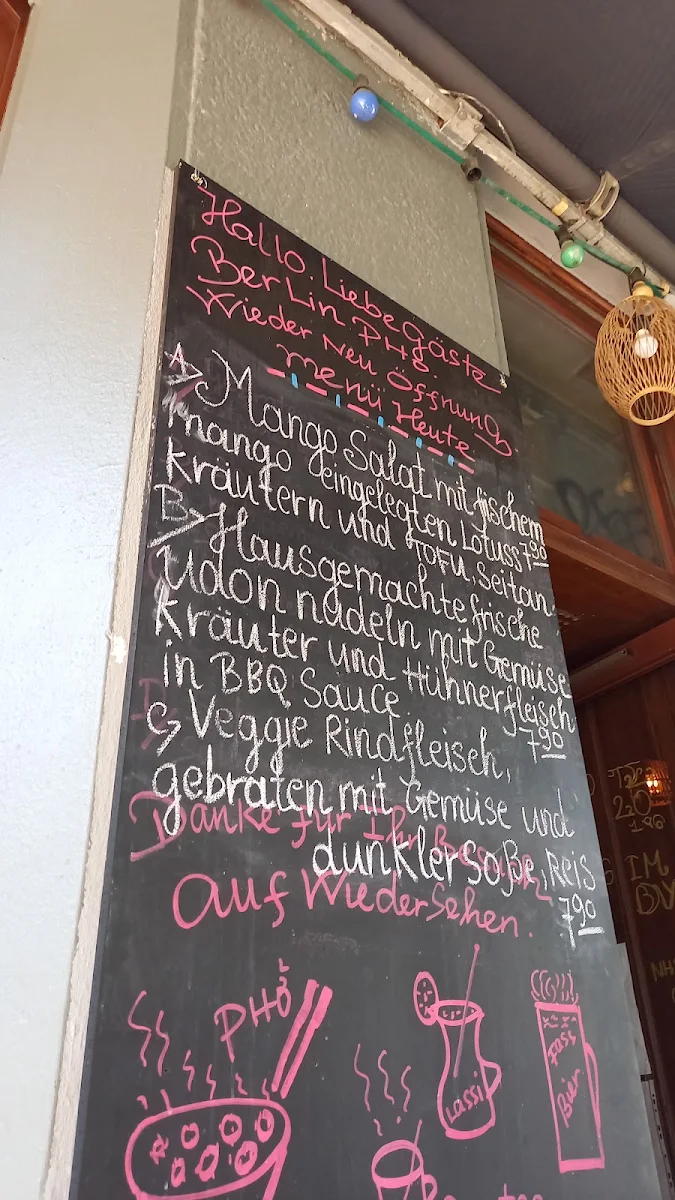 Hallo. Liebe Gäste
BerLin PHỞ.
Wieder Neu Öffnung
menü Heute
A> Mango Salat mit frischem
mango eingelegten Lotuss 7,90
kräutern und TOFU, Seitan.
B> Hausgemachte frische
Udon nudeln mit Gemüse
kräuter und Hühnerfleisch
in BBQ Sauce 7,90
C> Veggie Rindfleisch,
gebraten mit Gemüse und
dunkler Soße, Reis
7,90
Danke für Ihr
auf WiederSehen.
PHỞ
Lassi
Fass
Bier
IM